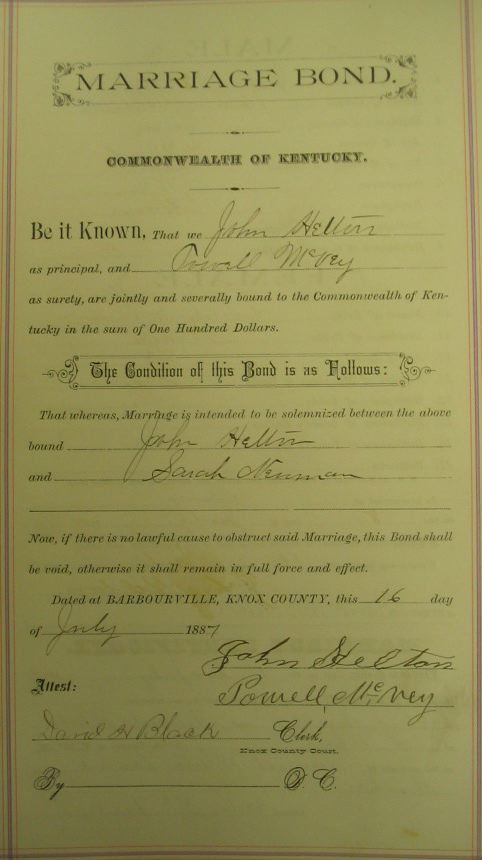 MARRIAGE BOND.
COMMONWEALTH OF KENTUCKY.
Be it Known, That we John Helton
as principal, and Powell McVey
as surety, are jointly and severally bound to the Commonwealth of Ken-
tucky in the sum of One Hundred Dollars.
The Condition of this Bond is as Follows:
That whereas, Marriage is intended to be solemnized between the above
bound John Helton
and Sarah Neuman
Now, if there is no lawful cause to obstruct said Marriage, this Bond shall
be void, otherwise it shall remain in full force and effect.
Dated at BARBOURVILLE, KNOX COUNTY, this 16 day
of July 1887
John Helton
Attest:
Powell McVey
David H Black Clerk,
Knox County Court.
By D. C.